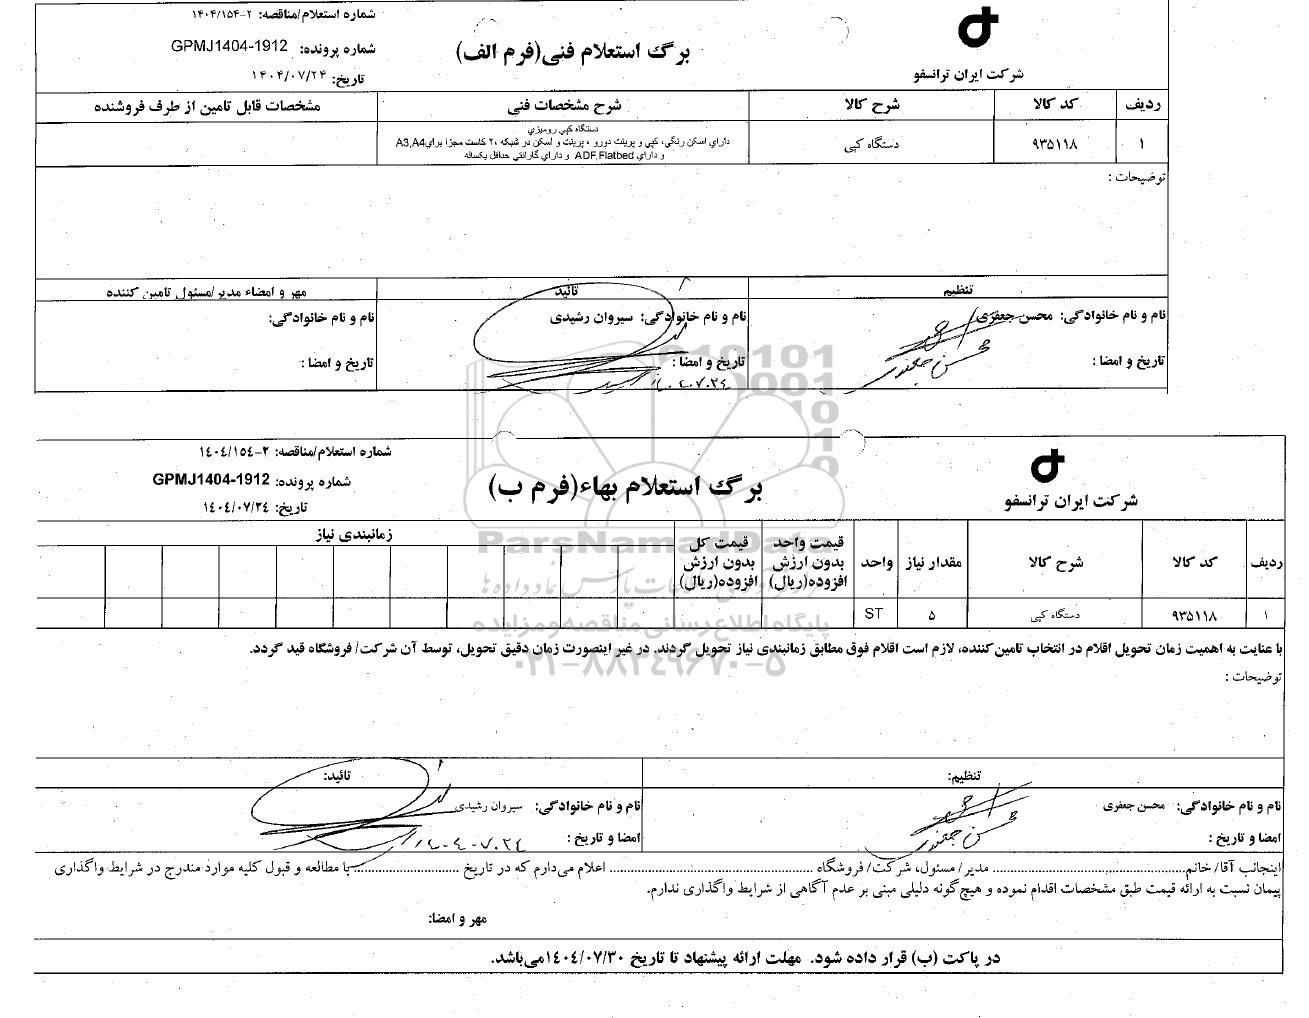 شماره استعلام/مناقصه: ۲-۱۴۰۴/۱۵۴
شماره پرونده: GPMJ1404-1912
تاریخ: ۱۴۰۴/۰۷/۲۴
برگ استعلام فنی(فرم الف)
شرکت ایران ترانسفو
ردیف کد کالا شرح کالا شرح مشخصات فنی مشخصات قابل تامین از طرف فروشنده
دستگاه کپي روميزي
۱ ۹۳۵۱۱۸ دستگاه کپی داراي اسکن رنگي، کپي و پرينت دورو ، پرينت و اسکن در شبکه ،۲ کاست مجزا برايA3,A4
و داراي ADF,Flatbed و داراي گارانتي حداقل يکساله
توضیحات :
تنظیم تائید مهر و امضاء مدیر/مسئول تامین کننده
نام و نام خانوادگی: محسن جعفری نام و نام خانوادگی: سیروان رشیدی نام و نام خانوادگی:
تاریخ و امضا : تاریخ و امضا : تاریخ و امضا :
محسن جعفری
۱۴۰۴.۷.۲۴
شماره استعلام/مناقصه: ۲-۱٤۰٤/۱٥٤
شماره پرونده: GPMJ1404-1912
تاریخ: ۱٤۰٤/۰۷/۲٤
برگ استعلام بهاء(فرم ب)
شرکت ایران ترانسفو
ردیف کد کالا شرح کالا مقدار نیاز واحد قیمت واحد بدون ارزش افزوده(ریال) قیمت کل بدون ارزش افزوده(ریال) زمانبندی نیاز
۱ ۹۳۵۱۱۸ دستگاه کپی ۵ ST
ParsNamadData
پایگاه اطلاع رسانی مناقصه و مزایده
۰۲۱-۸۸۳۴۹۶۷۰-۵
با عنایت به اهمیت زمان تحویل اقلام در انتخاب تامین‌کننده، لازم است اقلام فوق مطابق زمانبندی نیاز تحویل گردند. در غیر اینصورت زمان دقیق تحویل، توسط آن شرکت/ فروشگاه قید گردد.
توضیحات :
تنظیم: تائید:
نام و نام خانوادگی: محسن جعفری نام و نام خانوادگی: سیروان رشیدی
امضا و تاریخ : امضا و تاریخ :
محسن جعفری
۱۴۰۴.۷.۲۴
اینجانب آقا/ خانم........................ مدیر/ مسئول، شرکت/ فروشگاه ........................ اعلام می‌دارم که در تاریخ ........................ با مطالعه و قبول کلیه موارد مندرج در شرایط واگذاری
پیمان نسبت به ارائه قیمت طبق مشخصات اقدام نموده و هیچ‌گونه دلیلی مبنی بر عدم آگاهی از شرایط واگذاری ندارم.
مهر و امضا:
در پاکت (ب) قرار داده شود. مهلت ارائه پیشنهاد تا تاریخ ۱٤۰٤/۰۷/۳۰می‌باشد.